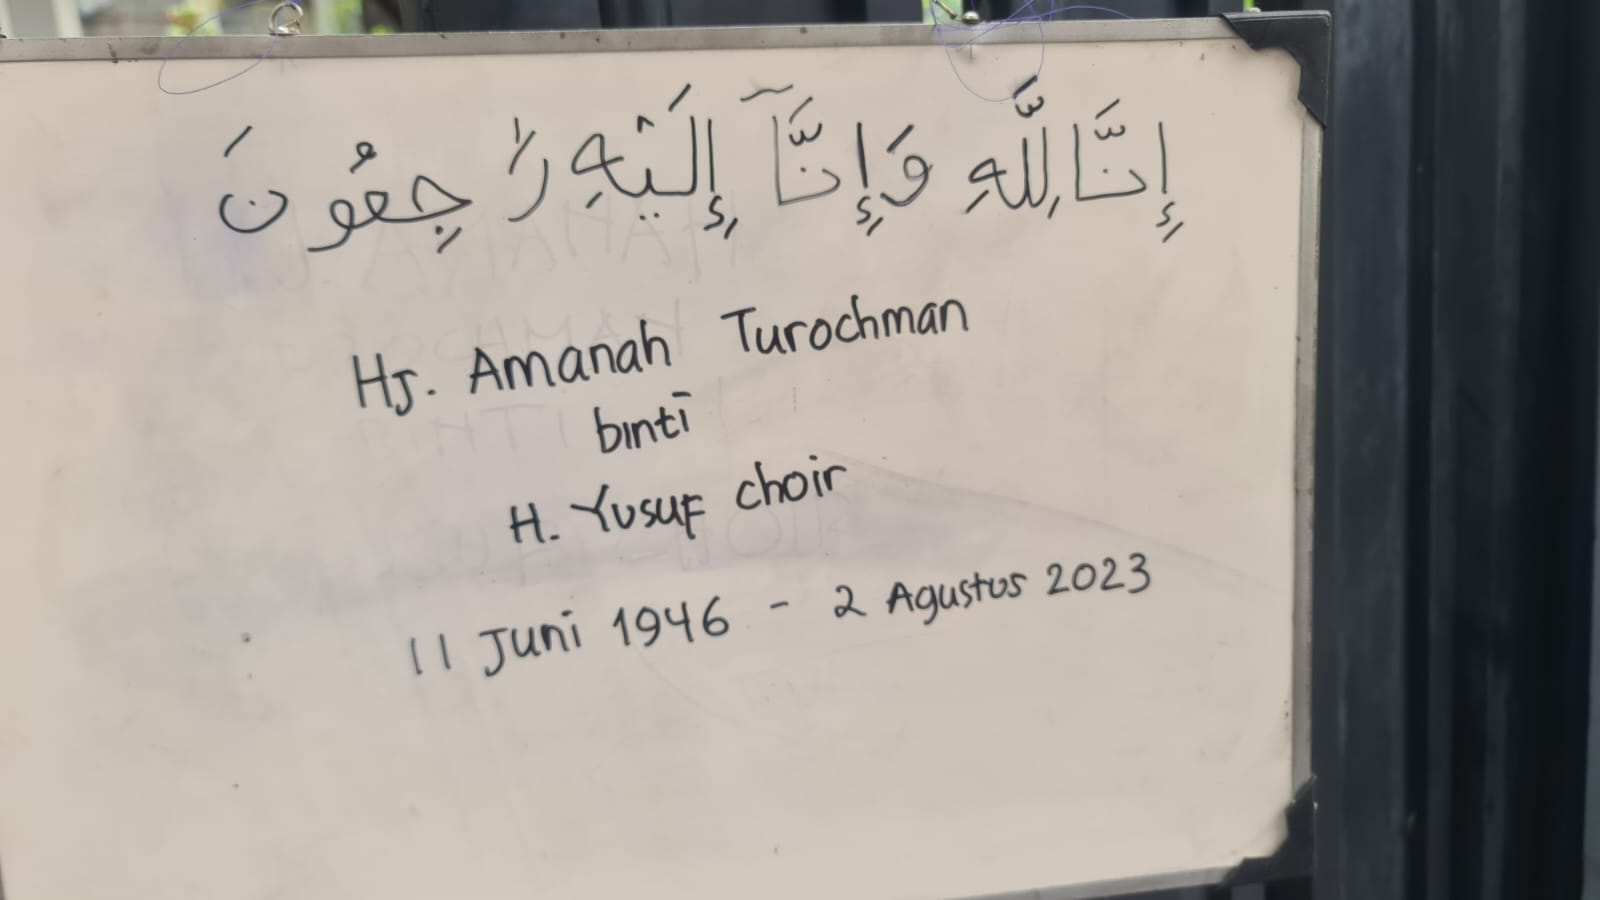 إِنَّا لِلَّهِ وَإِنَّآ إِلَيْهِ رَٰجِعُونَ
Hj. Amanah Turochman
binti
H. Yusuf choir
11 Juni 1946 - 2 Agustus 2023